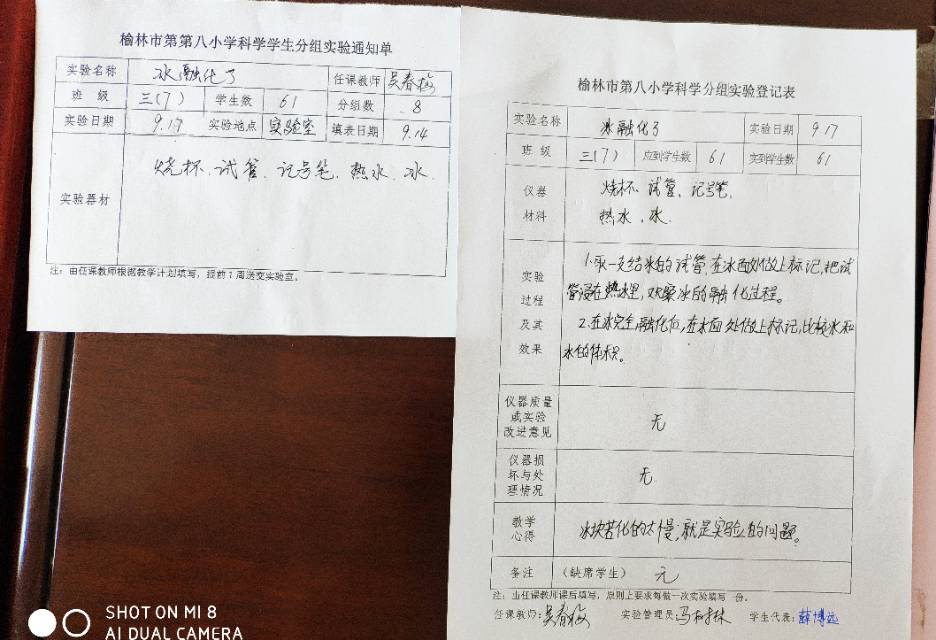 榆林市第第八小学科学学生分组实验通知单
实验名称 冰融化了 任课教师 吴春梅
班 级 三(7) 学生数 61 分组数 8
实验日期 9.17 实验地点 实验室 填表日期 9.14
实验器材 烧杯、试管、记号笔、热水、冰.
注：由任课教师根据教学计划填写，提前1周送交实验室。
榆林市第八小学科学分组实验登记表
实验名称 冰融化了 实验日期 9.17
班 级 三(7) 应到学生数 61 实到学生数 61
仪器 烧杯、试管、记号笔、
材料 热水、冰.
实验
过程
及其
效果
1.取一支结冰的试管,在冰面处做上标记,把试
管浸在热水里,观察冰的融化过程。
2.在冰完全融化后,在水面处做上标记,比较水和
冰的体积。
仪器质量
或实验
改进意见
无
仪器损
坏与处
理情况
无
教学
心得
冰块若化的太慢,就是实验的问题。
备注 (缺席学生) 无
注：由任课教师课后填写，原则上要求每做一次实验填写一份。
任课教师:吴春梅 实验管理员: 学生代表:薛博远
SHOT ON MI 8
AI DUAL CAMERA